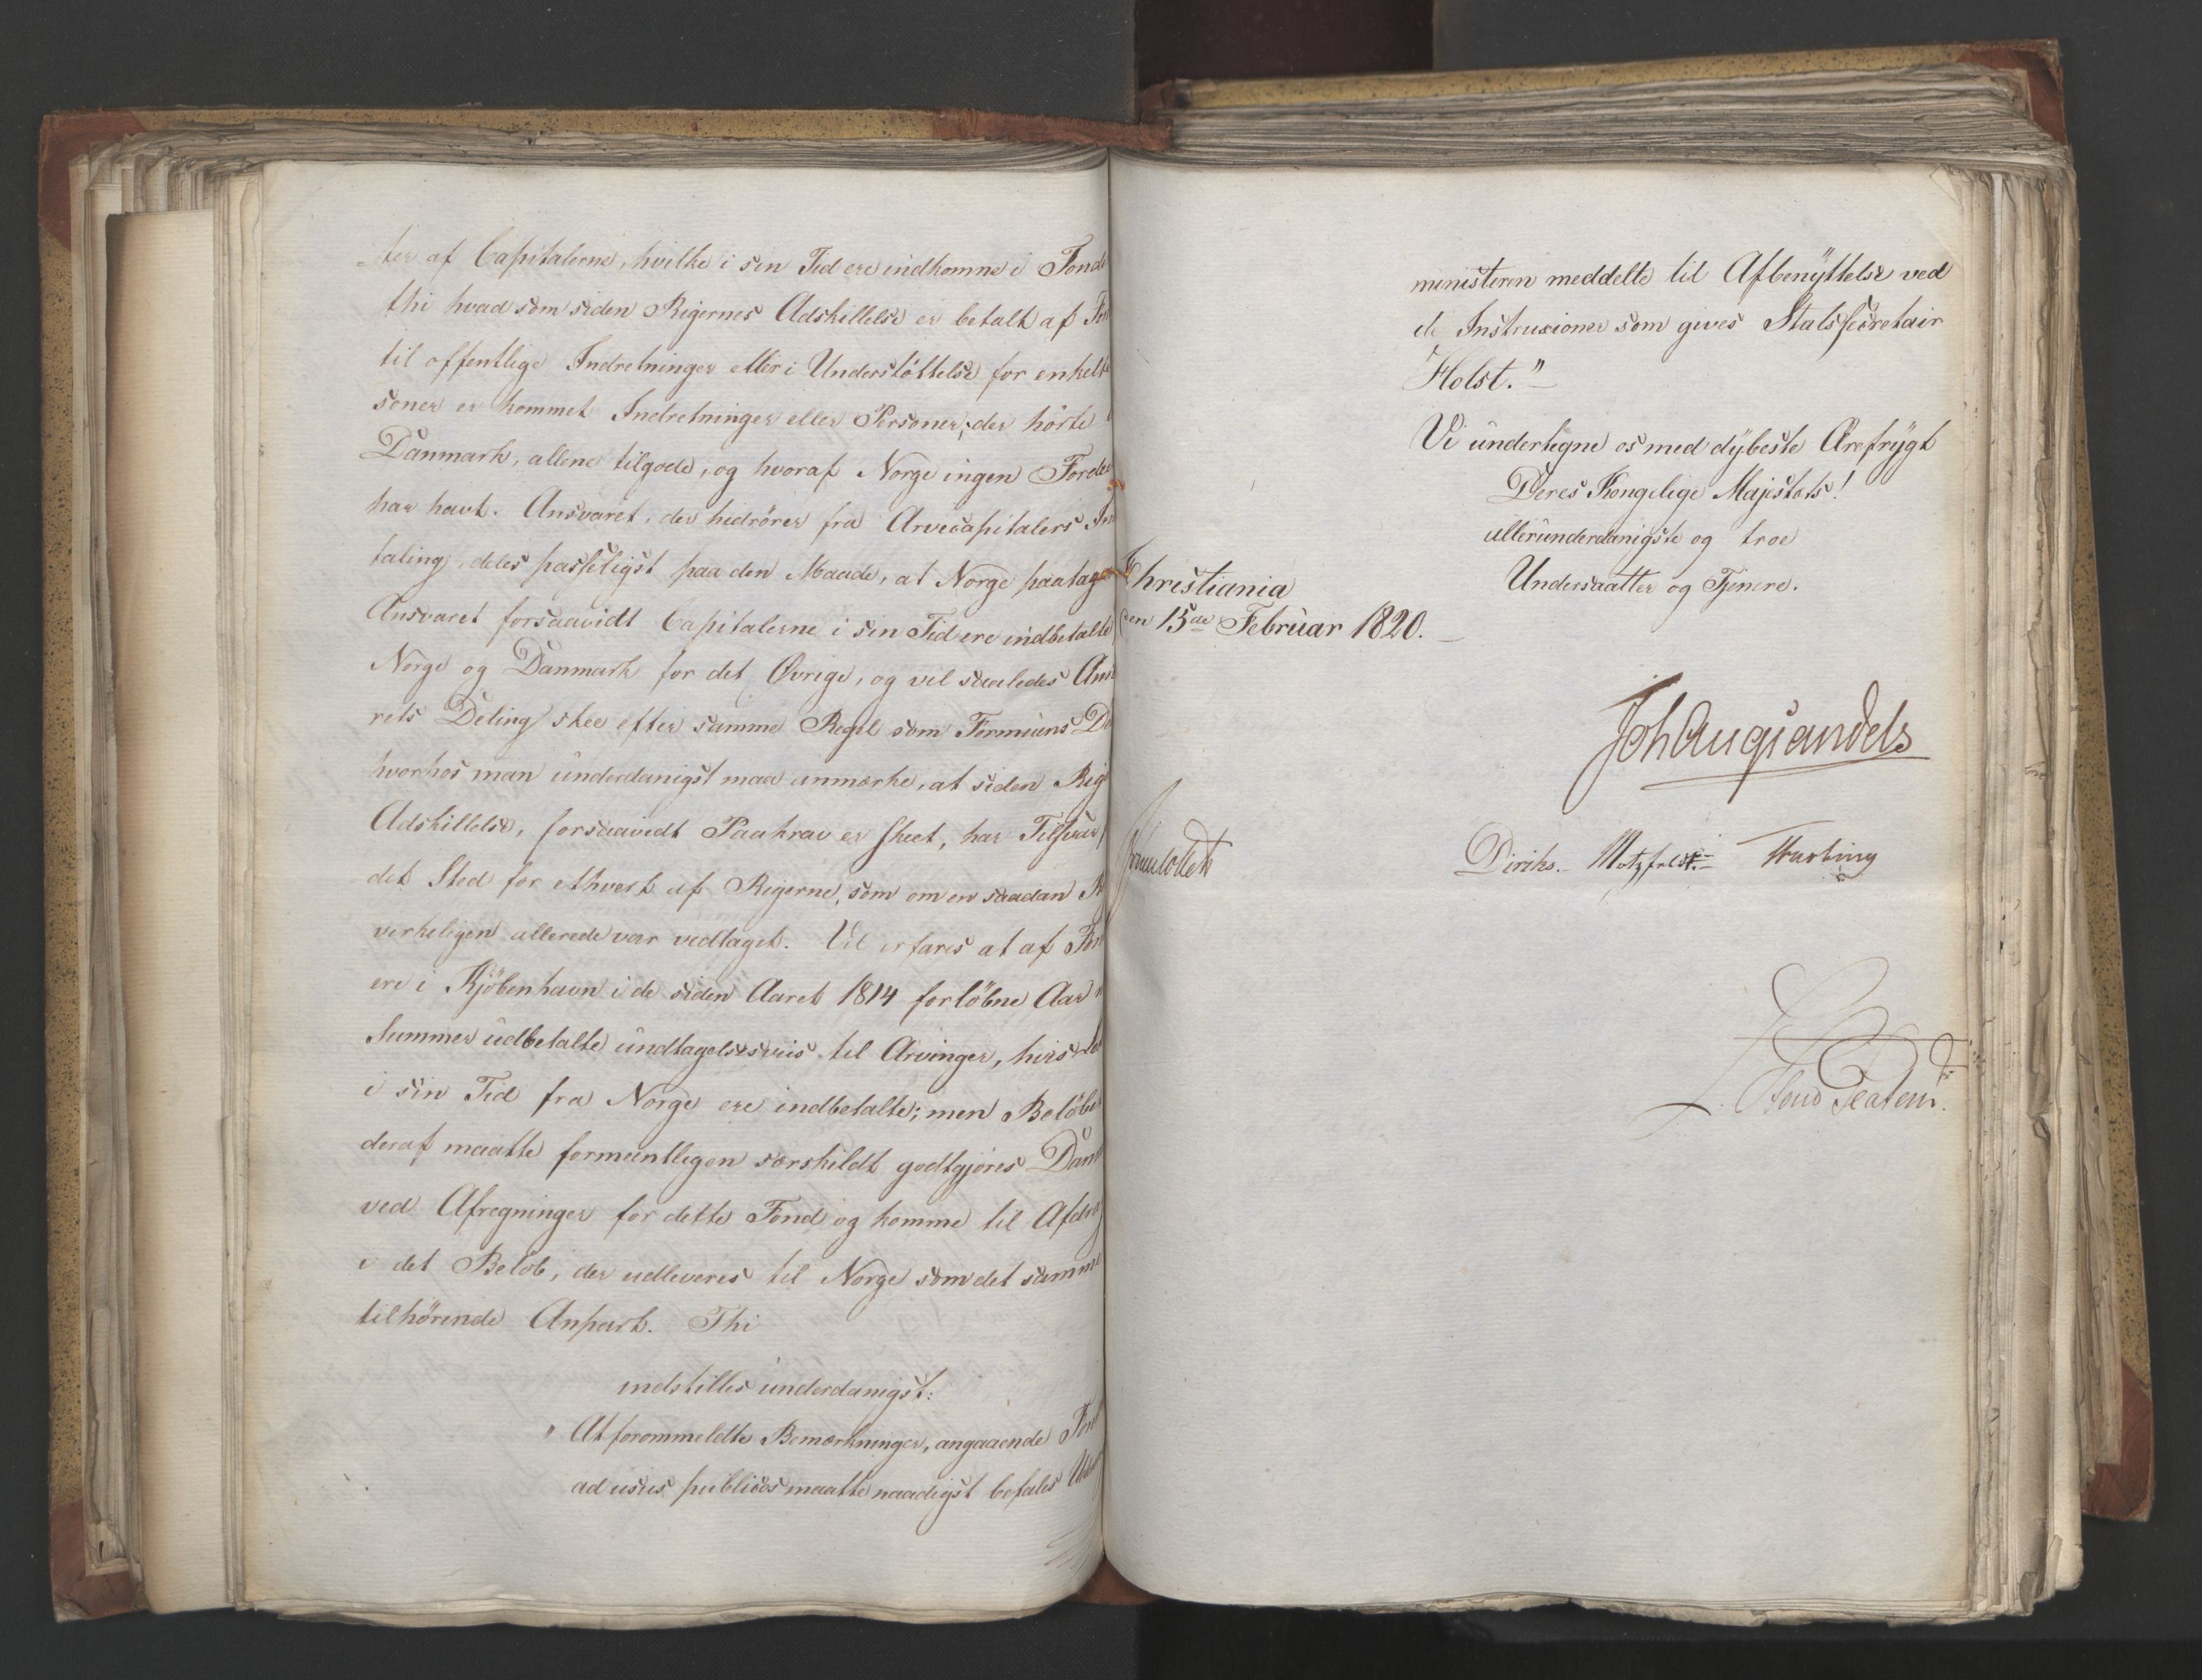 ter af Capitalerne, hvilke i sin Tid ere indkomne i Fonde
thi hvad som siden Rigernes Adskillelse er betalt af Fon
til offentlige Indretninger eller i Understöttelse for enkelte
soner er kommet Indretninger eller Personer, der hörte
Danmark, allene tilgode, og hvoraf Norge ingen Fordel
har havt. Ansvaret, der hidrörer fra Arvecapitalers In
taling, deles passeligst paa den Maade, at Norge paatager
Ansvaret forsaavidt Capitalerne i sin Tid ere indbetalte
Norge og Danmark for det Övrige, og vil saaledes Ans
rets Deling skee efter samme Regel som Formuens De
hvorhos man underdanigst maa anmærke, at siden Rig
Adskillelse, forsaavidt Paakrav er skeet, har Tilsvar
det Sted for ethvert af Rigerne, som om en saadan
virkeligen allerede var vedtaget. Vel erfares at af Fon
ere i Kjöbenhavn i de siden Aaret 1814 forlöbne Aar
Summer udbetalte undtagelsesviis til Arvinger, hvis
i sin Tid fra Norge ere indbetalte; men Belöbet
deraf maatte formeentligen særskildt godtgjöres Dan
ved Afregninger for dette Fond og komme til Afdrag
i det Belöb, der udleveres til Norge som det samme
tilhörende Anpart. Thi
indstilles underdanigst:
" At forommeldte Bemærkninger, angaaende Fon
ad usus publicos maatte naadigst befales
ministeren meddelte til Afbenyttelse ved
de Instruxioner som gives Statssecretair
Holst."
Vi undertegne os med dybeste Ærefrygt
Deres Kongelige Majestæts!
allerunderdanigste og troe
Undersaatter og Tjenere.
Christiania
den 15de Februar 1820.
Joh Aug Sandels
Sommerfeldt
Diriks. Motzfeldt. Krebting